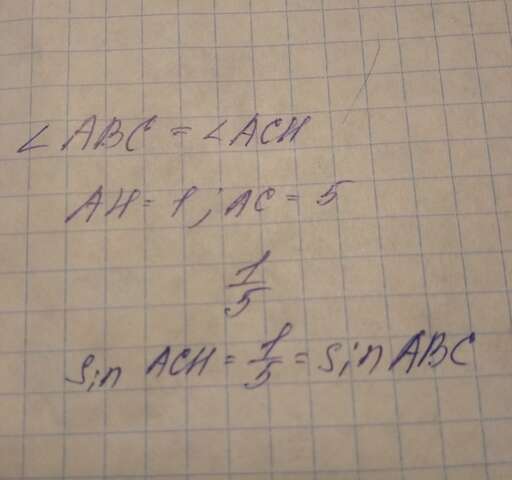 ∠ ABC = ∠ACH
AH = 1 ; AC = 5
1/5
Sin ACH = 1/5 = sin ABC